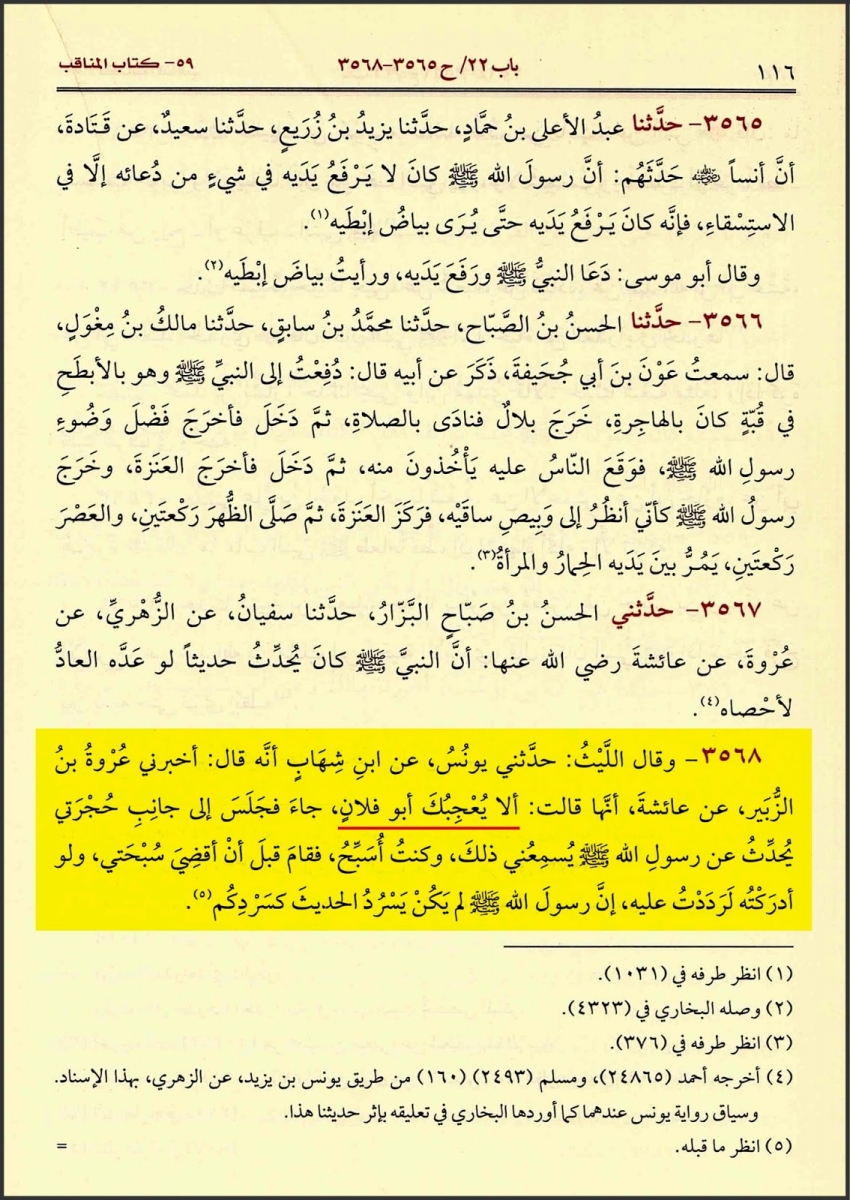 ١١٦ باب ٢٢/ ح ٣٥٦٥-٣٥٦٨ ٥٩- كتاب المناقب
٣٥٦٥- حدَّثنا عبدُ الأعلى بنُ حمَّادٍ، حدَّثنا يزيدُ بنُ زُرَيعٍ، حدَّثنا سعيدٌ، عن قَتَادةَ،
أنَّ أنساً ﵁ حَدَّثَهُم: أنَّ رسولَ الله ﷺ كانَ لا يَرْفَعُ يَدَيه في شيءٍ من دُعائه إلَّا في
الاستِسْقاءِ، فإنَّه كانَ يَرْفَعُ يَدَيه حتَّى يُرَى بياضُ إبْطَيه(١).
وقال أبو موسى: دَعَا النبيُّ ﷺ ورَفَعَ يَدَيه، ورأيتُ بياضَ إبْطَيه(٢).
٣٥٦٦- حدَّثنا الحسنُ بنُ الصَّبّاح، حدَّثنا محمَّدُ بنُ سابقٍ، حدَّثنا مالكُ بنُ مِغْوَلٍ،
قال: سمعتُ عَوْنَ بنَ أبي جُحَيفةَ، ذَكَرَ عن أبيه قال: دُفِعْتُ إلى النبيِّ ﷺ وهو بالأبطَحِ
في قُبَّةٍ كانَ بالهاجِرةِ، خَرَجَ بلالٌ فنادَى بالصلاةِ، ثمَّ دَخَلَ فأخرَجَ فَضْلَ وَضُوءِ
رسولِ الله ﷺ، فوَقَعَ النّاسُ عليه يَأْخُذونَ منه، ثمَّ دَخَلَ فأخرَجَ العَنَزةَ، وخَرَجَ
رسولُ الله ﷺ كأنّي أنظُرُ إلى وَبِيصِ ساقَيه، فرَكَزَ العَنَزةَ، ثمَّ صَلَّى الظُّهرَ رَكْعتَينِ، والعَصْرَ
رَكْعتَينِ، يَمُرُّ بينَ يَدَيه الحِمارُ والمرأةُ(٣).
٣٥٦٧- حدَّثني الحسنُ بنُ صَبّاحٍ البَزّارُ، حدَّثنا سفيانُ، عن الزُّهْريِّ، عن
عُرْوةَ، عن عائشةَ رضي الله عنها: أنَّ النبيَّ ﷺ كانَ يُحدِّثُ حديثاً لو عَدَّه العادُّ
لأحْصاه(٤).
٣٥٦٨- وقال اللَّيْثُ: حدَّثني يونُسُ، عن ابنِ شِهَابٍ أنَّه قال: أخبرني عُرْوةُ بنُ
الزُّبَير، عن عائشةَ، أنَّها قالت: ألا يُعْجِبُكَ أبو فلانٍ، جاءَ فجَلَسَ إلى جانِبِ حُجْرَتي
يُحدِّثُ عن رسولِ الله ﷺ يُسمِعُني ذلكَ، وكنتُ أُسَبِّحُ، فقامَ قبلَ أنْ أقضِيَ سُبْحَتي، ولو
أدرَكْتُه لَرَدَدْتُ عليه، إنَّ رسولَ الله ﷺ لم يَكُنْ يَسْرُدُ الحديثَ كسَرْدِكُم(٥).
(١) انظر طرفه في (١٠٣١).
(٢) وصله البخاري في (٤٣٢٣).
(٣) انظر طرفه في (٣٧٦).
(٤) أخرجه أحمد (٢٤٨٦٥)، ومسلم (٢٤٩٣) (١٦٠) من طريق يونس بن يزيد، عن الزهري، بهذا الإسناد.
وسياق رواية يونس عندهما كما أوردها البخاري في تعليقه بإثر حديثنا هذا.
(٥) انظر ما قبله. =